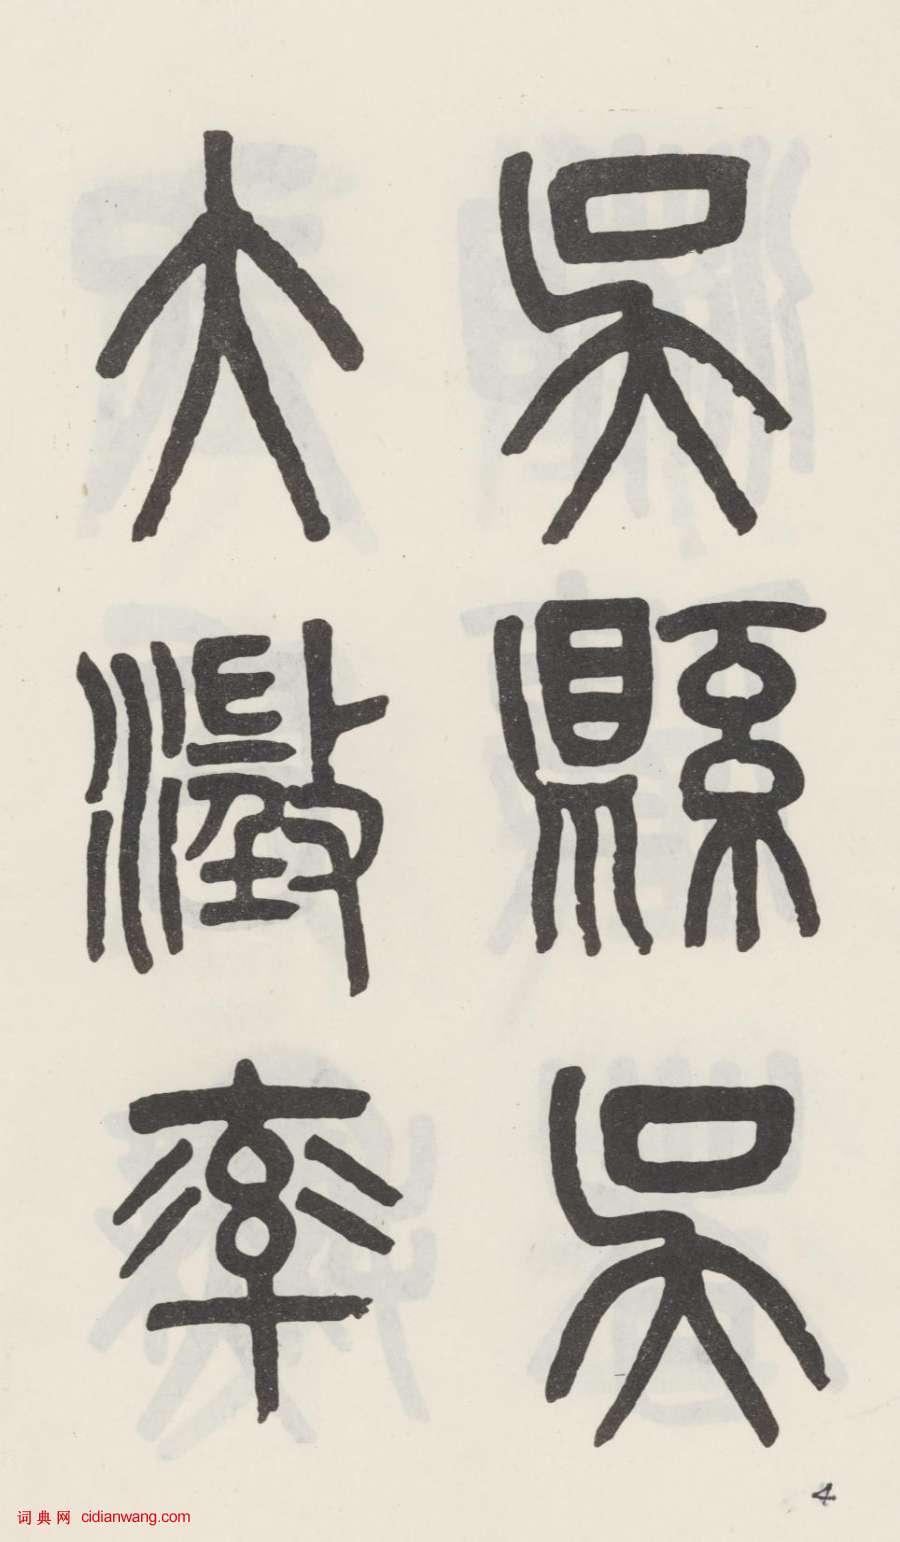 吳縣吳
大澂率
4
词典网 cidianwang.com